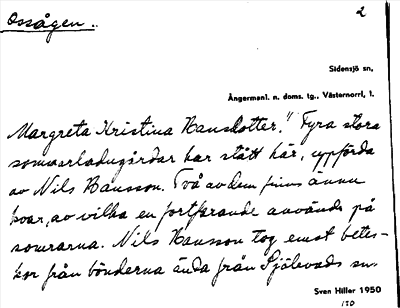 Ossågen..
2
Sidensjö sn,
Ångermanl. n. doms. tg., Västernorrl, l.
Margreta Kristina Hansdotter." Fyra stora
sommarladugårdar har stått här, uppförda
av Nils Hansson. Två av dem finns ännu
kvar, av vilka en fortfarande används på
somrarna. Nils Hansson tog emot betes-
kor från bönderna ända från Själevads sn.
Sven Hiller 1950
170